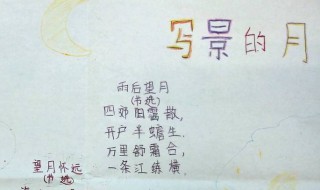 写景的月
雨后望月
(节选)
四郊阴霭散，
开户半蟾生。
万里舒霜合，
一条江练横。
望月怀远
(节选)